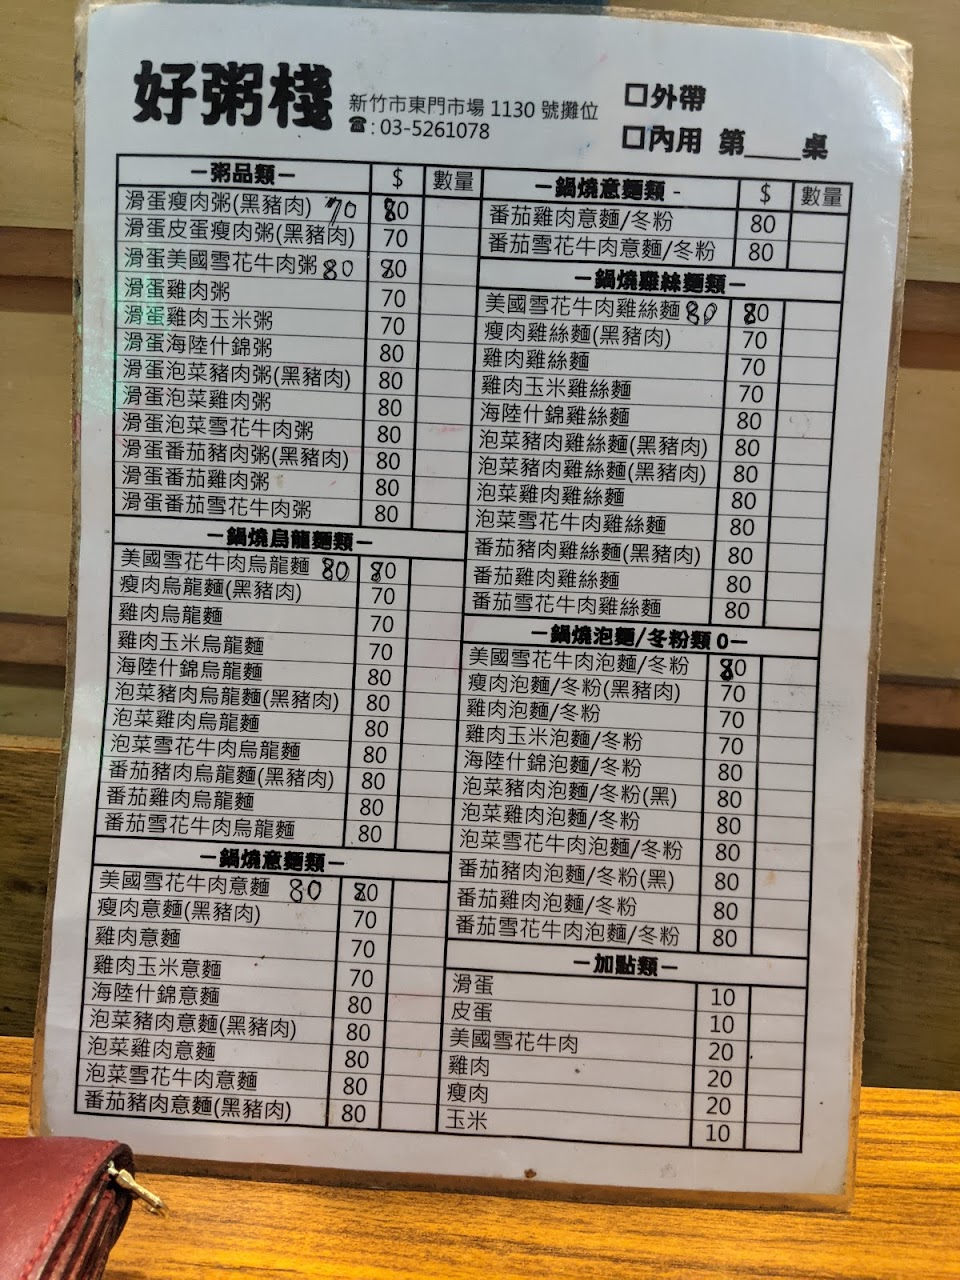 好粥棧
新竹市東門市場 1130 號攤位
☎: 03-5261078
□外帶
□內用 第____桌
－粥品類－ $ 數量
滑蛋瘦肉粥(黑豬肉) 70 80
滑蛋皮蛋瘦肉粥(黑豬肉) 70
滑蛋美國雪花牛肉粥 80 80
滑蛋雞肉粥 70
滑蛋雞肉玉米粥 70
滑蛋海陸什錦粥 80
滑蛋泡菜豬肉粥(黑豬肉) 80
滑蛋泡菜雞肉粥 80
滑蛋泡菜雪花牛肉粥 80
滑蛋番茄豬肉粥(黑豬肉) 80
滑蛋番茄雞肉粥 80
滑蛋番茄雪花牛肉粥 80
－鍋燒烏龍麵類－
美國雪花牛肉烏龍麵 80 80
瘦肉烏龍麵(黑豬肉) 70
雞肉烏龍麵 70
雞肉玉米烏龍麵 70
海陸什錦烏龍麵 80
泡菜豬肉烏龍麵(黑豬肉) 80
泡菜雞肉烏龍麵 80
泡菜雪花牛肉烏龍麵 80
番茄豬肉烏龍麵(黑豬肉) 80
番茄雞肉烏龍麵 80
番茄雪花牛肉烏龍麵 80
－鍋燒意麵類－
美國雪花牛肉意麵 80 80
瘦肉意麵(黑豬肉) 70
雞肉意麵 70
雞肉玉米意麵 70
海陸什錦意麵 80
泡菜豬肉意麵(黑豬肉) 80
泡菜雞肉意麵 80
泡菜雪花牛肉意麵 80
番茄豬肉意麵(黑豬肉) 80
－鍋燒意麵類 - $ 數量
番茄雞肉意麵/冬粉 80
番茄雪花牛肉意麵/冬粉 80
－鍋燒雞絲麵類－
美國雪花牛肉雞絲麵 80 80
瘦肉雞絲麵(黑豬肉) 70
雞肉雞絲麵 70
雞肉玉米雞絲麵 70
海陸什錦雞絲麵 80
泡菜豬肉雞絲麵(黑豬肉) 80
泡菜豬肉雞絲麵(黑豬肉) 80
泡菜雞肉雞絲麵 80
泡菜雪花牛肉雞絲麵 80
番茄豬肉雞絲麵(黑豬肉) 80
番茄雞肉雞絲麵 80
番茄雪花牛肉雞絲麵 80
－鍋燒泡麵/冬粉類 0－
美國雪花牛肉泡麵/冬粉 80
瘦肉泡麵/冬粉(黑豬肉) 70
雞肉泡麵/冬粉 70
雞肉玉米泡麵/冬粉 70
海陸什錦泡麵/冬粉 80
泡菜豬肉泡麵/冬粉(黑) 80
泡菜雞肉泡麵/冬粉 80
泡菜雪花牛肉泡麵/冬粉 80
番茄豬肉泡麵/冬粉(黑) 80
番茄雞肉泡麵/冬粉 80
番茄雪花牛肉泡麵/冬粉 80
－加點類－
滑蛋 10
皮蛋 10
美國雪花牛肉 20
雞肉 20
瘦肉 20
玉米 10